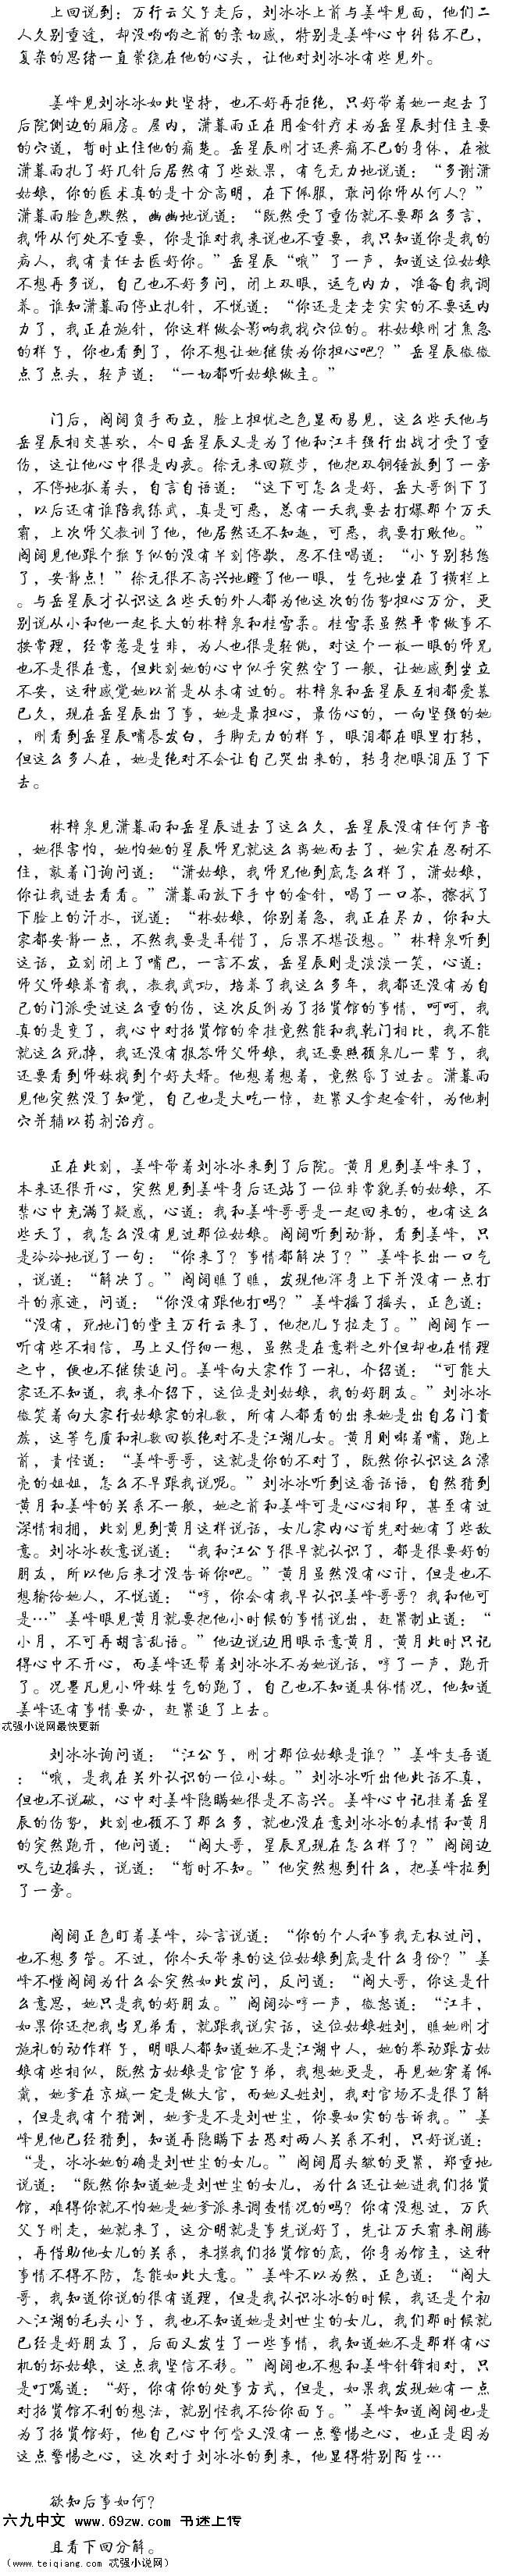 上回说到：万行云父子走后，刘冰冰上前与姜峰见面，他们二
人久别重逢，却没哟哟之前的亲切感，特别是姜峰心中纠结不已，
复杂的思绪一直萦绕在他的心头，让他对刘冰冰有些见外。
姜峰见刘冰冰如此坚持，也不好再拒绝，只好带着她一起去了
后院侧边的厢房。屋内，潇暮雨正在用金针疗术为岳星辰封住主要
的穴道，暂时止住他的痛楚。岳星辰刚才还疼痛不已的身体，在被
潇暮雨扎了好几针后居然有了些效果，有气无力地说道：“多谢潇
姑娘，你的医术真的是十分高明，在下佩服，敢问你师从何人？”
潇暮雨脸色默然，幽幽地说道：“既然受了重伤就不要那么多言，
我师从何处不重要，你是谁对我来说也不重要，我只知道你是我的
病人，我有责任去医好你。”岳星辰“哦”了一声，知道这位姑娘
不想再多说，自己也不好多问，闭上双眼，运气内力，准备自我调
养。谁知潇暮雨停止扎针，不悦道：“你还是老老实实的不要运内
力了，我正在施针，你这样做会影响我找穴位的。林姑娘刚才焦急
的样子，你也看到了，你不想让她继续为你担心吧？”岳星辰微微
点了点头，轻声道：“一切都听姑娘做主。”
门后，阎阔负手而立，脸上担忧之色显而易见，这么些天他与
岳星辰相交甚欢，今日岳星辰又是为了他和江丰强行出战才受了重
伤，这让他心中很是内疚。徐元来回踱步，他把双铜锤放到了一旁
，不停地抓着头，自言自语道：“这下可怎么是好，岳大哥倒下了
，以后还有谁陪我练武，真是可恶，总有一天我要去打爆那个万天
霸，上次师父教训了他，他居然还不知趣，可恶，我要打败他。”
阎阔见他跟个猴子似的没有半刻停歇，忍不住喝道：“小子别转悠
了，安静点！”徐元很不高兴地瞪了他一眼，生气地坐在了横栏上
。与岳星辰才认识这么些天的外人都为他这次的伤势担心万分，更
别说从小和他一起长大的林梓泉和桂雪柔。桂雪柔虽然平常做事不
按常理，经常惹是生非，为人也很是轻佻，对这个一板一眼的师兄
也不是很在意，但此刻她的心中似乎突然空了一般，让她感到坐立
不安，这种感觉她以前是从未有过的。林梓泉和岳星辰互相都爱慕
已久，现在岳星辰出了事，她是最担心，最伤心的，一向坚强的她
，刚看到岳星辰嘴唇发白，手脚无力的样子，眼泪都在眼里打转，
但这么多人在，她是绝对不会让自己哭出来的，转身把眼泪压了下
去。
林梓泉见潇暮雨和岳星辰进去了这么久，岳星辰没有任何声音
，她很害怕，她怕她的星辰师兄就这么离她而去了，她实在忍耐不
住，敲着门询问道：“潇姑娘，我师兄他到底怎么样了，潇姑娘，
你让我进去看看。”潇暮雨放下手中的金针，喝了一口茶，擦拭了
下脸上的汗水，说道：“林姑娘，你别着急，我正在尽力，你和大
家都安静一点，不然我要是弄错了，后果不堪设想。”林梓泉听到
这话，立刻闭上了嘴巴，一言不发，岳星辰则是淡淡一笑，心道：
师父师娘养育我，教我武功，培养了我这么多年，我都还没有为自
己的门派受过这么重的伤，这次反倒为了招贤馆的事情，呵呵，我
真的是变了，我心中对招贤馆的牵挂竟然能和我乾门相比，我不能
就这么死掉，我还没有报答师父师娘，我还要照顾泉儿一辈子，我
还要看到师妹找到个好夫婿。他想着想着，竟然昏了过去。潇暮雨
见他突然没了知觉，自己也是大吃一惊，赶紧又拿起金针，为他刺
穴并辅以药剂治疗。
正在此刻，姜峰带着刘冰冰来到了后院。黄月见到姜峰来了，
本来还很开心，突然见到姜峰身后还站了一位非常貌美的姑娘，不
禁心中充满了疑惑，心道：我和姜峰哥哥是一起回来的，也有这么
些天了，我怎么没有见过那位姑娘。阎阔听到动静，看到姜峰，只
是冷冷地说了一句：“你来了？事情都解决了？”姜峰长出一口气
，说道：“解决了。”阎阔瞧了瞧，发现他浑身上下并没有一点打
斗的痕迹，问道：“你没有跟他打吗？”姜峰摇了摇头，正色道：
“没有，死地门的堂主万行云来了，他把儿子拉走了。”阎阔乍一
听有些不相信，马上又仔细一想，虽然是在意料之外但却也在情理
之中，便也不继续追问。姜峰向大家作了一礼，介绍道：“可能大
家还不知道，我来介绍下，这位是刘姑娘，我的好朋友。”刘冰冰
微笑着向大家行姑娘家的礼数，所有人都看的出来她是出自名门贵
族，这等气质和礼数回敬绝对不是江湖儿女。黄月则嘟着嘴，跑上
前，责怪道：“姜峰哥哥，这就是你的不对了，既然你认识这么漂
亮的姐姐，怎么不早跟我说呢。”刘冰冰听到这番话语，自然猜到
黄月和姜峰的关系不一般，她之前和姜峰可是心心相印，甚至有过
深情相拥，此刻见到黄月这样说话，女儿家内心首先对她有了些敌
意。刘冰冰故意说道：“我和江公子很早就认识了，都是很要好的
朋友，所以他后来才没告诉你吧。”黄月虽然没有心计，但是也不
想输给她人，不悦道：“哼，你会有我早认识姜峰哥哥？我和他可
是…”姜峰眼见黄月就要把他小时候的事情说出，赶紧制止道：“
小月，不可再胡言乱语。”他边说边用眼示意黄月，黄月此时只记
得心中不开心，而姜峰还帮着刘冰冰不为她说话，哼了一声，跑开
了。况墨凡见小师妹生气的跑了，自己也不知道具体情况，他知道
姜峰还有事情要办，赶紧追了上去。
忒强小说网最快更新
刘冰冰询问道：“江公子，刚才那位姑娘是谁？”姜峰支吾道
：“哦，是我在关外认识的一位小妹。”刘冰冰听出他此话不真，
但也不说破，心中对姜峰隐瞒她很是不高兴。姜峰心中记挂着岳星
辰的伤势，此刻也顾不了那么多，就也没在意刘冰冰的表情和黄月
的突然跑开，他问道：“阎大哥，星辰兄现在怎么样了？”阎阔边
叹气边摇头，说道：“暂时不知。”他突然想到什么，把姜峰拉到
了一旁。
阎阔正色盯着姜峰，冷言说道：“你的个人私事我无权过问，
也不想多管。不过，你今天带来的这位姑娘到底是什么身份？”姜
峰不懂阎阔为什么会突然如此发问，反问道：“阎大哥，你这是什
么意思，她只是我的好朋友。”阎阔冷哼一声，微怒道：“江丰，
如果你还把我当兄弟看，就跟我说实话，这位姑娘姓刘，瞧她刚才
施礼的动作样子，明眼人都知道她不是江湖中人，她的举动跟方姑
娘有些相似，既然方姑娘是官宦子弟，我想她更是，再见她穿着佩
戴，她爹在京城一定是做大官，而她又姓刘，我对官场不是很了解
，但是我有个猜测，她爹是不是刘世尘，你要如实的告诉我。”姜
峰见他已经猜到，知道再隐瞒下去恐对两人关系不利，只好说道：
“是，冰冰她的确是刘世尘的女儿。”阎阔眉头皱的更紧，郑重地
说道：“既然你知道她是刘世尘的女儿，为什么还让她进我们招贤
馆，难得你就不怕她是她爹派来调查情况的吗？你有没想过，万氏
父子刚走，她就来了，这分明就是事先说好了，先让万天霸来闹腾
，再借助他女儿的关系，来摸我们招贤馆的底，你身为馆主，这种
事情不得不防，怎能如此大意。”姜峰不以为然，正色道：“阎大
哥，我知道你说的很有道理，但是我认识冰冰的时候，我还是个初
入江湖的毛头小子，我也不知道她是刘世尘的女儿，我们那时候就
已经是好朋友了，后面又发生了一些事情，我知道她不是那样有心
机的坏姑娘，这点我坚信不移。”阎阔也不想和姜峰针锋相对，只
是叮嘱道：“好，你有你的处事方式，但是，如果我发现她有一点
对招贤馆不利的想法，就别怪我不给你面子。”姜峰知道阎阔也是
为了招贤馆好，他自己心中何尝又没有一点警惕之心，也正是因为
这点警惕之心，这次对于刘冰冰的到来，他显得特别陌生…
欲知后事如何？
六九中文 www.69zw.com 书迷上传
且看下回分解。
（www.teiqiang.com 忒强小说网）